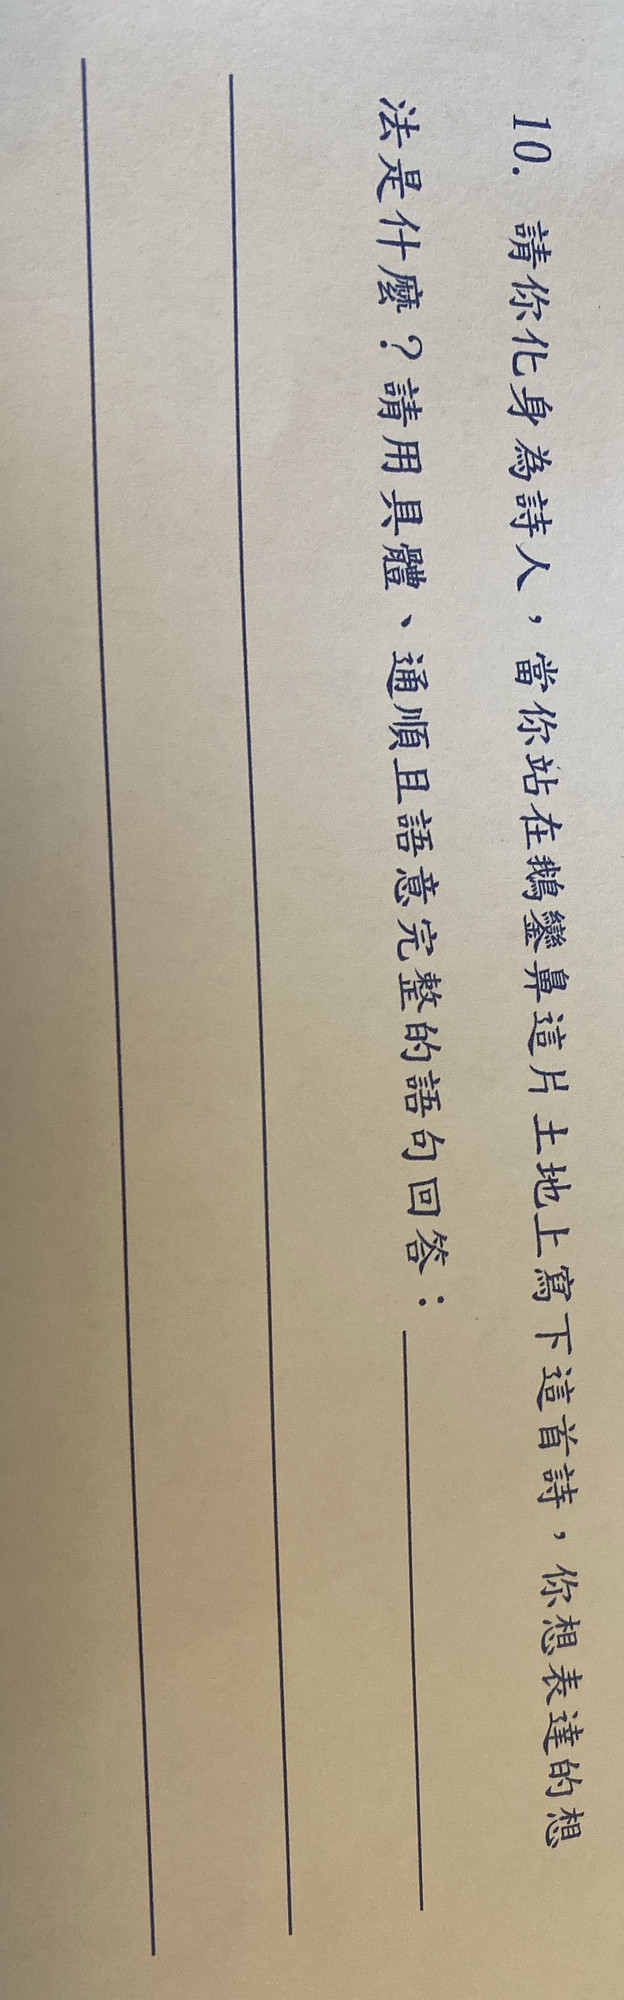 10. 請你化身為詩人，當你站在鵝鑾鼻這片土地上寫下這首詩，你想表達的想
法是什麼？請用具體、通順且語意完整的語句回答：